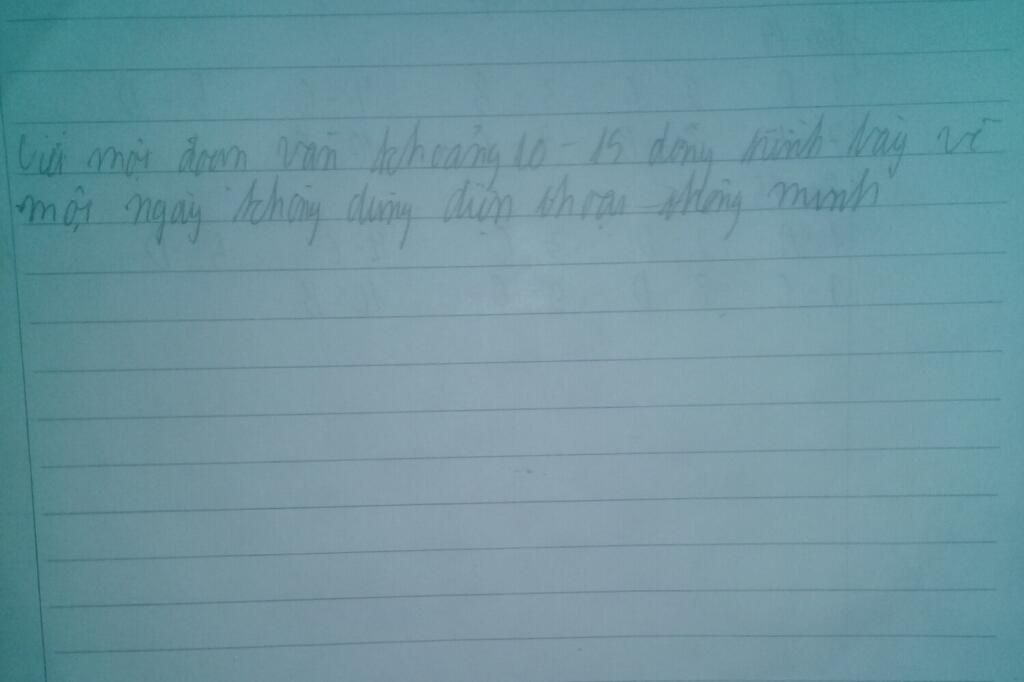 Viết một đoạn văn khoảng 10 - 15 dòng trình bày về
một ngày không dùng điện thoại thông minh